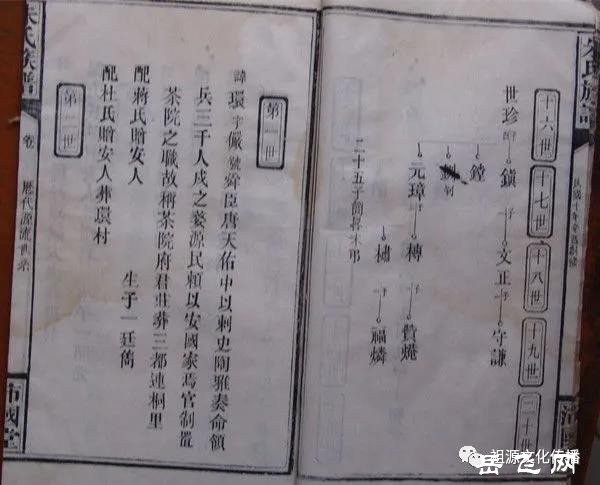 十六世
十七世
十八世
十九世
二十世
世珍
鎮
子
文正
子
守謙
鏜
元璋
子
樉
子
橚
子
福燐
二十五子簡畧未刋
朱氏族譜
卷
歷代源流世系
第一世
諱環字佩號舜臣唐天佑中以刺史陶雅奏命領
兵三千人戍之婺源民賴以安國家焉官制置
茶院之職故稱茶院府君葬三都連桐里
配蔣氏贈安人
配杜氏贈安人葬環村
生子一廷儁
第二世
沛國堂
祖源文化传播
岳飞网